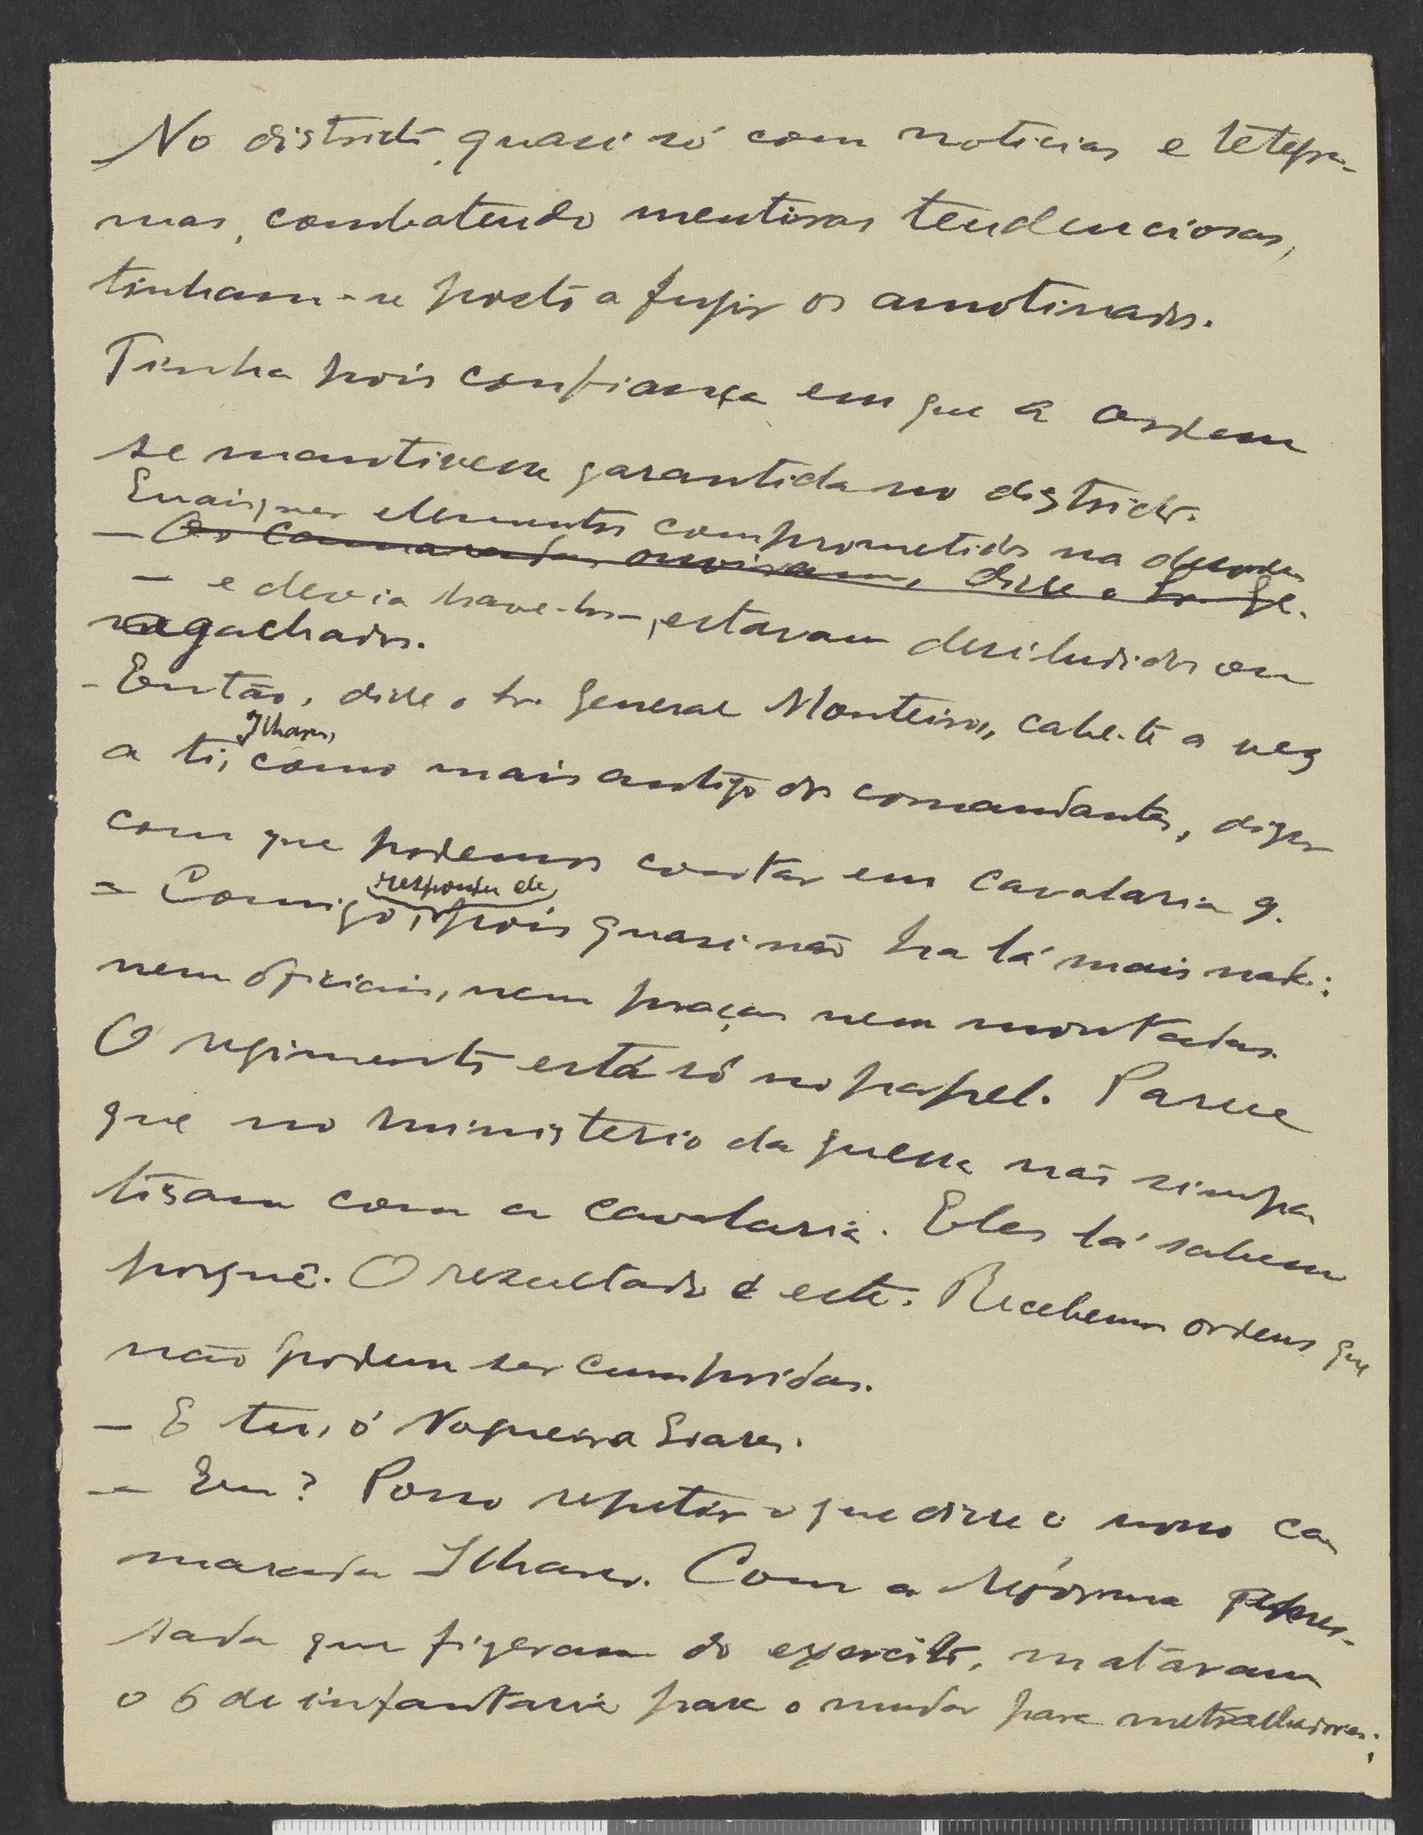 No districto, quasi só com noticias e telegra-
mas, combatendo mentiras tendenciosas,
tinham-se posto a fugir os amotinados.
Tinha pois confiança em que a ordem
se mantivesse garantida no districto.
Quaisquer elementos comprometidos na desordem
— Os camaradas ouviram, disse o Sr. Ge-
— e devia have-los —, estavam desiludidos ou
agachados.
- Então, disse o Sr. General Monteiro, cabe-te a vez
Ilharco,
a ti, como mais antigo dos comandantes, dizer
com que podemos contar em cavalaria 9.
respondeu ele,
= Comigo, pois quasi não ha lá mais nada:
nem oficiais, nem praças nem montadas.
O regimento está só no papel. Parece
que no ministerio da guerra não simpa
tisam com a cavalaria. Eles lá sabem
porquê. O rezultado é este. Recebemos ordens que
não podem ser cumpridas.
— E tu, ó Nogueira Soares.
— Eu? Posso repetir o que disse o nosso ca
marada Ilharco. Com a refórma apres-
sada que fizeram do exercito, mataram
o 6 de infantaria para o mudar para metralhadoras;